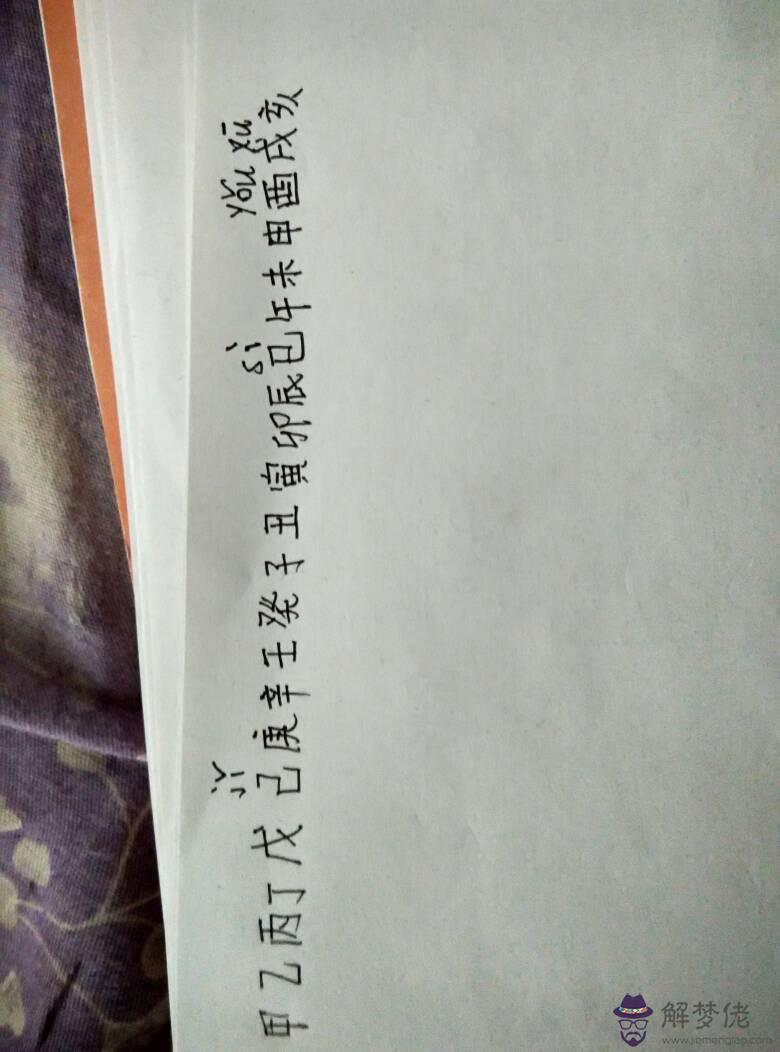 jǐ sì yǒu xū
甲乙丙丁戊己庚辛壬癸子丑寅卯辰巳午未申酉戌亥
解梦佬
www.jiemenglao.com